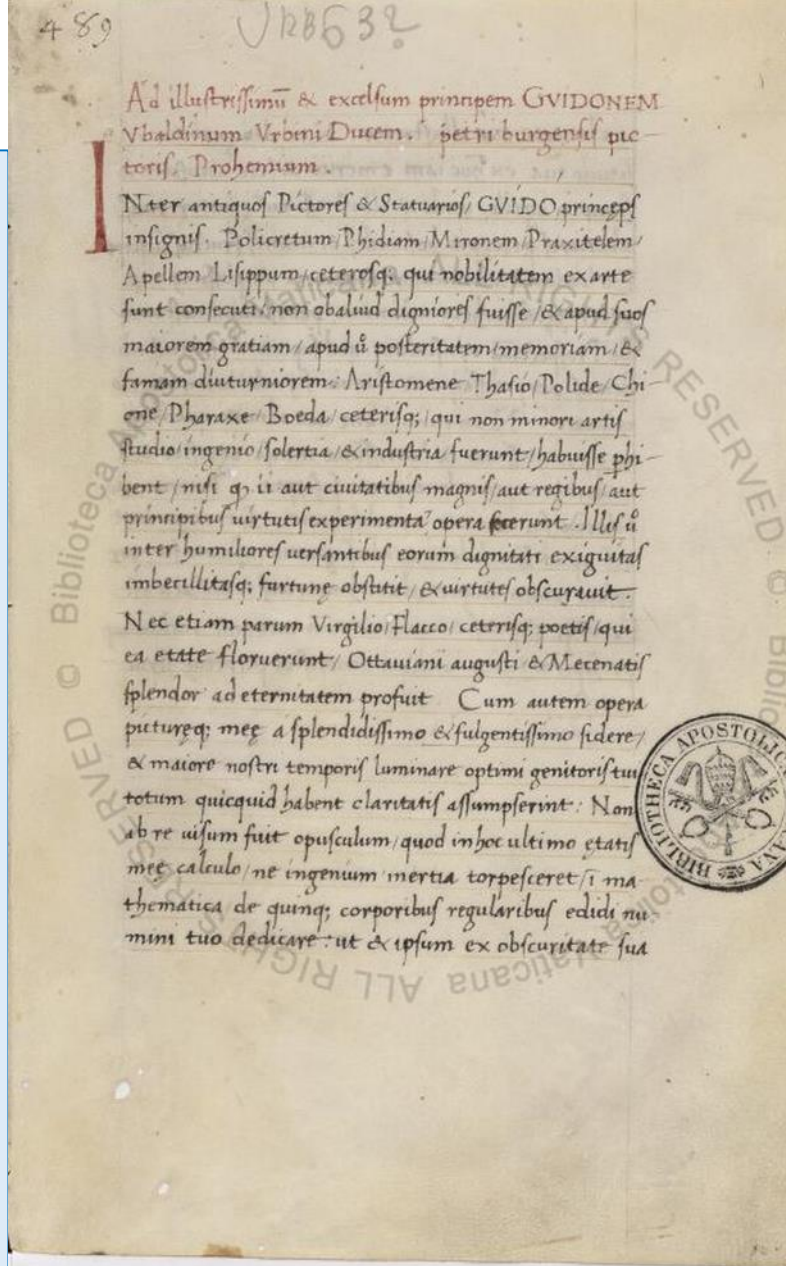 489
VRB632
Ad illustrissimū & excelsum principem GVIDONEM
Vbaldinum Vrbini Ducem. petri burgensis pic-
toris. Prohemium.
INter antiquos Pictores & Statuarios/ GVIDO princeps
insignis. Policretum/Phidiam/Mironem/Praxitelem/
Apellem Lisippum/ceterosq; qui nobilitatem ex arte
sunt consecuti/non obaliud digniores fuisse/& apud suos
maiorem gratiam/apud ů posteritatem/memoriam/&
famam diuturniorem: Aristomene Thasio/Polide/Chi-
one/Pharaxe/Boeda/ceterisq; qui non minori artis
studio/ingenio/solertia/& industria fuerunt/habuisse phi-
bent/nisi q, ii aut ciuitatibus magnis/aut regibus/aut
principibus uirtutis experimenta opera fecerunt. Illis ů
inter humiliores uersantibus eorum dignitati exiguitas
imbecillitasq; fortunę obstitit/& uirtutes obscurauit.
Nec etiam parum Virgilio/Flacco/ceterisq; poetis/qui
ea etate floruerunt/Ottauiani augusti & Mecenatis
splendor ad eternitatem profuit Cum autem opera
picturęq; meę a splendidissimo & fulgentissimo sidere/
& maiore nostri temporis luminare optimi genitoris tui
totum quicquid habent claritatis assumpserint: Non
ab re uisum fuit opusculum/quod in hoc ultimo ętatis
meę calculo/ne ingenium inertia torpesceret/i ma-
thematica de quinq; corporibus regularibus edidi nu-
mini tuo dedicare: ut & ipsum ex obscuritate sua
BIBLIOTHECA APOSTOLICA
Biblioteca Apostolica Vaticana ALL RIGHTS RESERVED ©